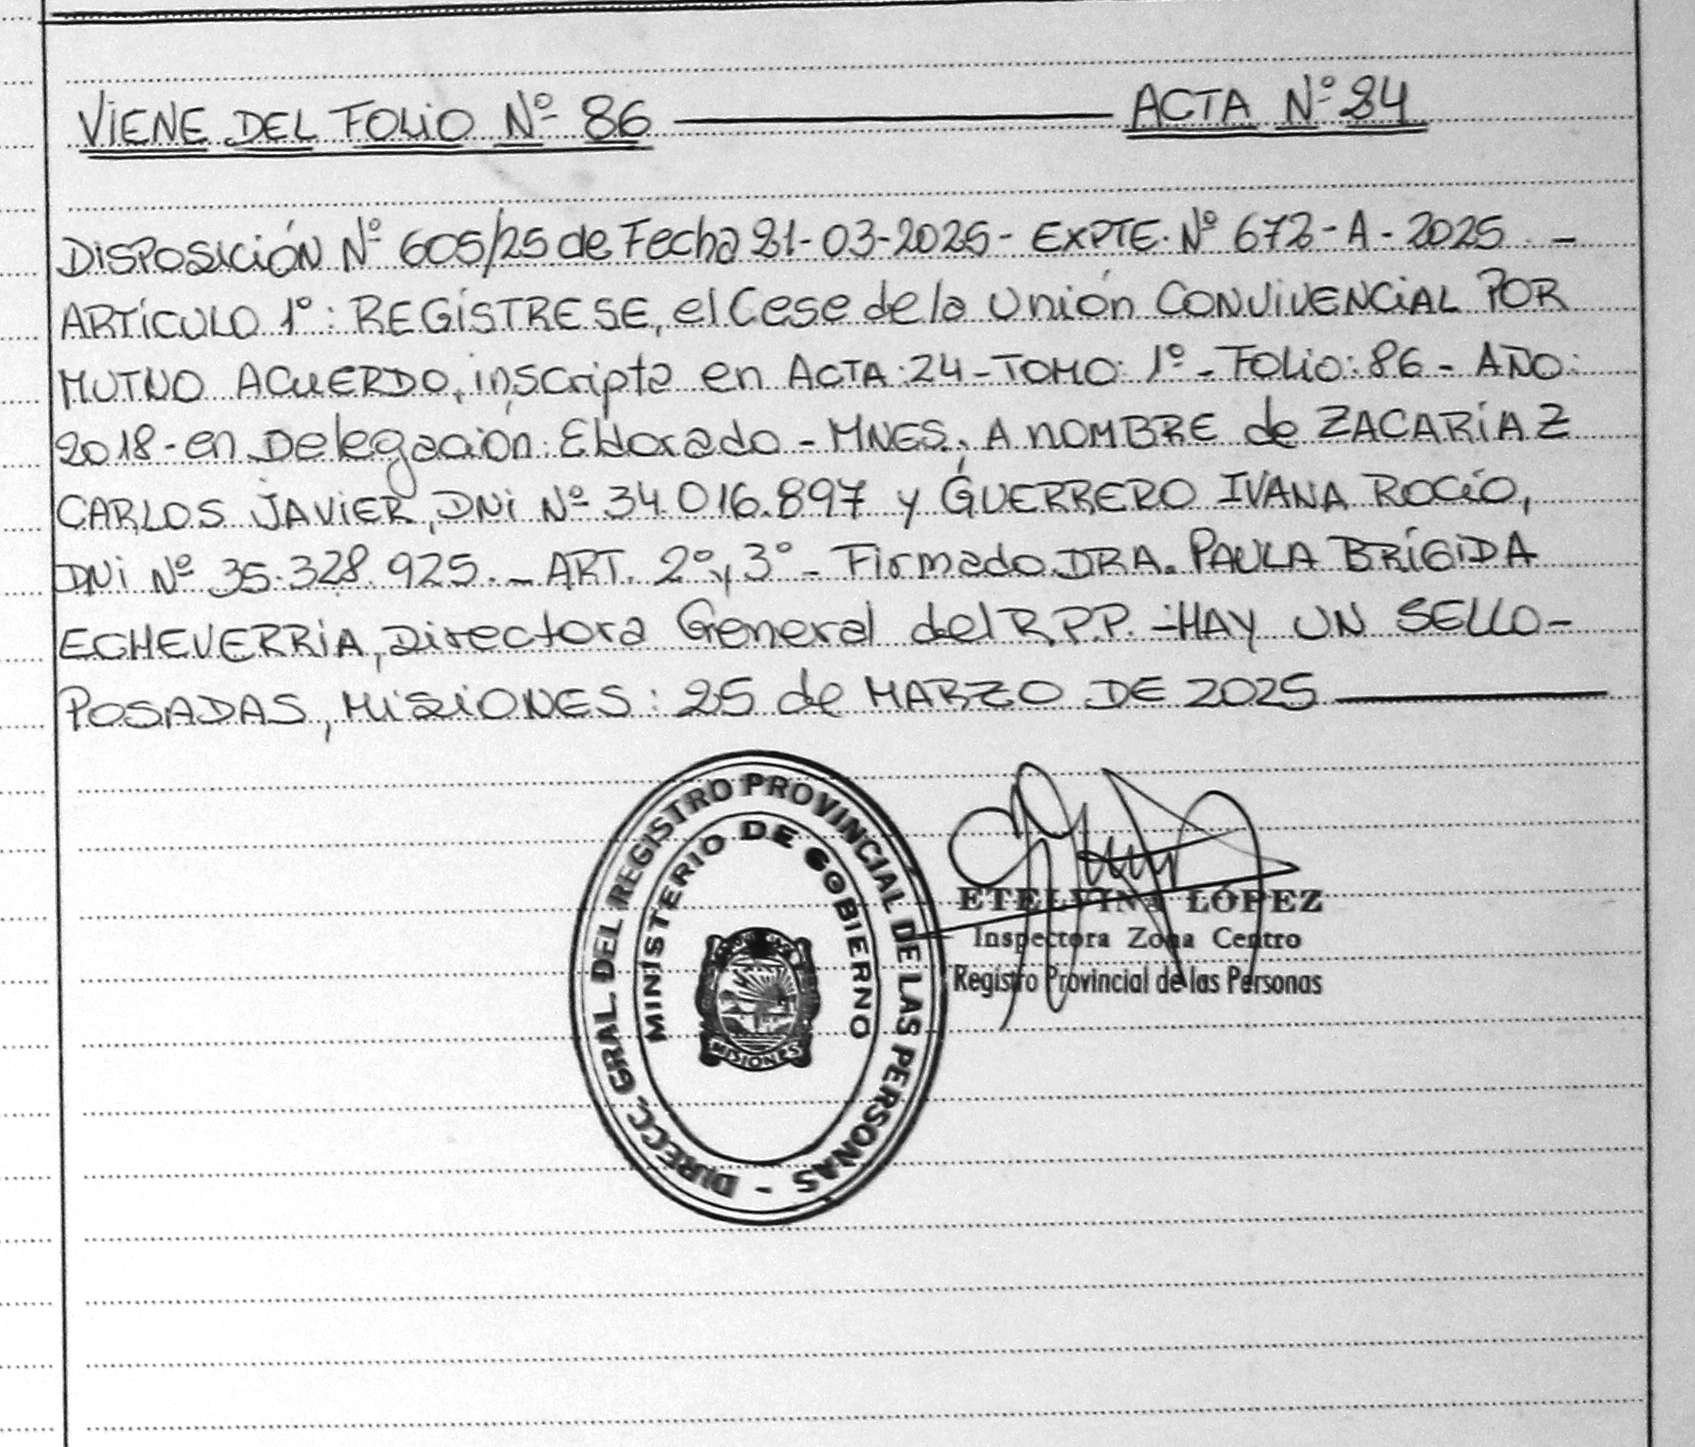 VIENE DEL FOLIO Nº 86 ACTA Nº 24
DISPOSICIÓN Nº 605/25 de Fecha 21-03-2025- EXPTE. Nº 672-A-2025 -
ARTÍCULO 1º: REGÍSTRESE, el Cese de la Unión CONVIVENCIAL POR
MUTUO ACUERDO, inscripta en ACTA: 24 - TOMO: 1º - FOLIO: 86 - AÑO:
2018 - en Delegación: Eldorado - MNES. A NOMBRE de ZACARÍAZ
CARLOS JAVIER, DNI Nº 34.016.897 y GUERRERO IVANA ROCÍO,
DNI Nº 35.328.925. - ART. 2º y 3º - Firmado DRA. PAULA BRÍGIDA
ECHEVERRÍA, Directora General del R.P.P. - HAY UN SELLO -
POSADAS, MISIONES: 25 de MARZO DE 2025
DIRECC. GRAL DEL REGISTRO PROVINCIAL DE LAS PERSONAS -
MINISTERIO DE GOBIERNO
MISIONES
ETELVINA LÓPEZ
Inspectora Zona Centro
Registro Provincial de las Personas